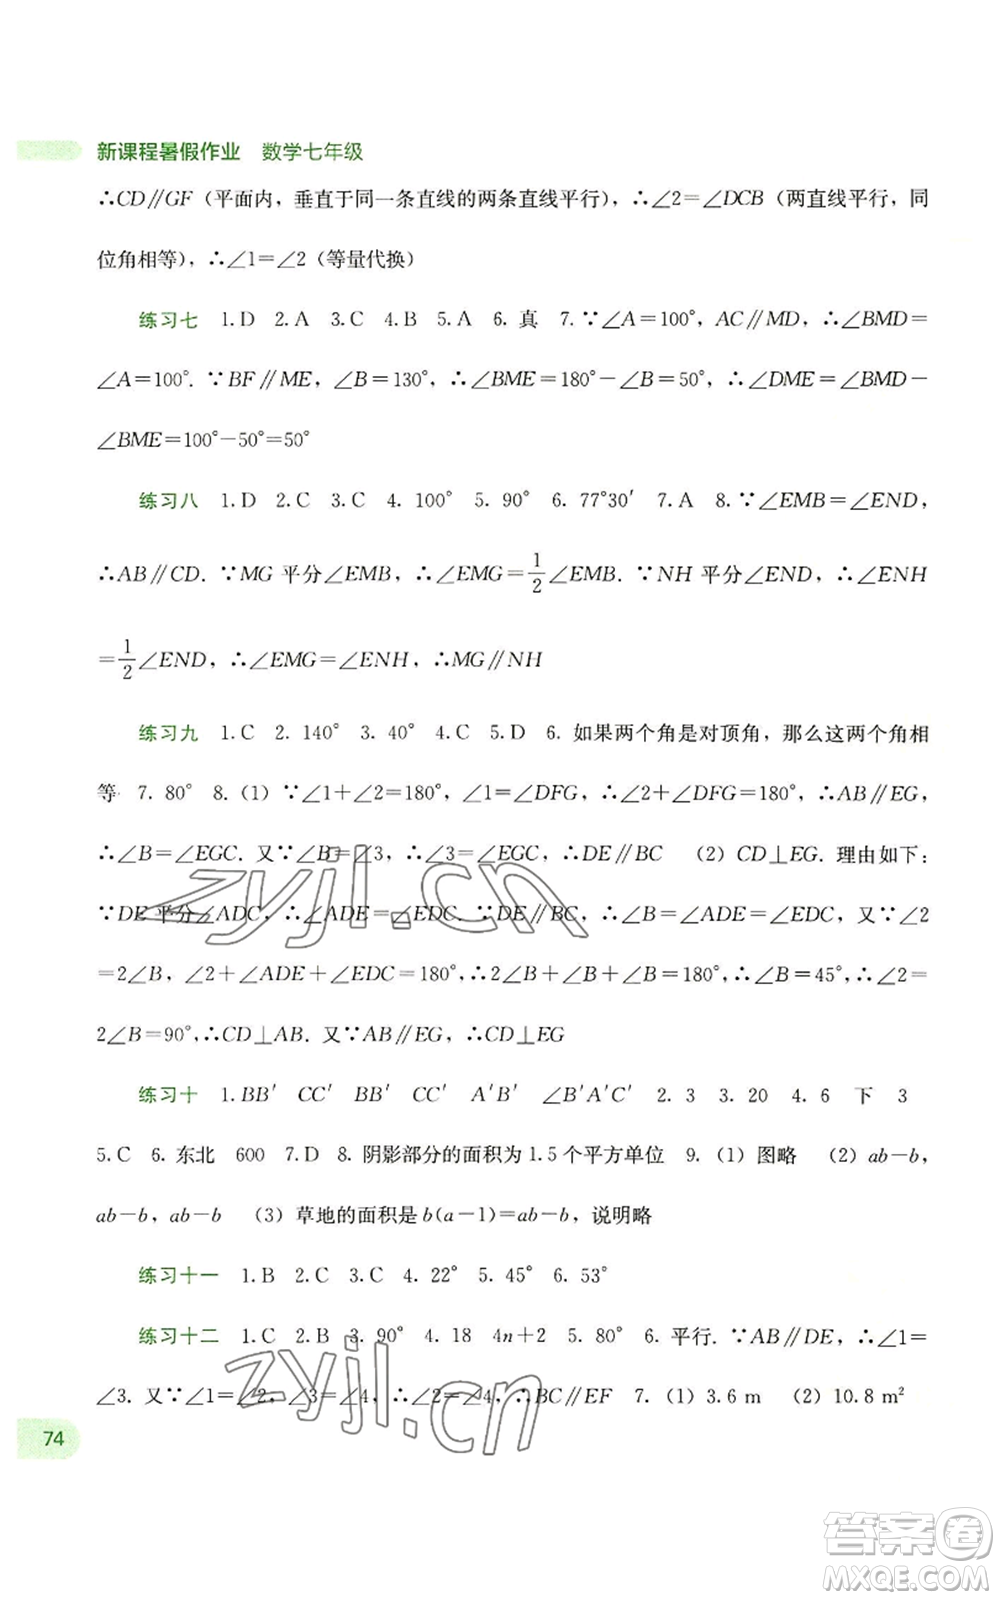 新课程暑假作业 数学七年级
∴CD∥GF（平面内，垂直于同一条直线的两条直线平行），∴∠2＝∠DCB（两直线平行，同
位角相等），∴∠1＝∠2（等量代换）
练习七 1.D 2.A 3.C 4.B 5.A 6. 真 7.∵∠A＝100°，AC∥MD，∴∠BMD＝
∠A＝100°. ∵BF∥ME，∠B＝130°，∴∠BME＝180°－∠B＝50°，∴∠DME＝∠BMD－
∠BME＝100°－50°＝50°
练习八 1.D 2.C 3.C 4. 100° 5. 90° 6. 77°30′ 7.A 8.∵∠EMB＝∠END，
∴AB∥CD. ∵MG 平分∠EMB，∴∠EMG＝1/2∠EMB. ∵NH 平分∠END，∴∠ENH
＝1/2∠END，∴∠EMG＝∠ENH，∴MG∥NH
练习九 1.C 2. 140° 3. 40° 4.C 5.D 6. 如果两个角是对顶角，那么这两个角相
等. 7. 80° 8.（1）∵∠1＋∠2＝180°，∠1＝∠DFG，∴∠2＋∠DFG＝180°，∴AB∥EG，
∴∠B＝∠EGC. 又∵∠B＝∠3，∴∠3＝∠EGC，∴DE∥BC （2）CD⊥EG. 理由如下：
∵DE 平分∠ADC，∴∠ADE＝∠EDC. ∵DE∥BC，∴∠B＝∠ADE＝∠EDC，又∵∠2
＝2∠B，∠2＋∠ADE＋∠EDC＝180°，∴2∠B＋∠B＋∠B＝180°，∴∠B＝45°，∴∠2＝
2∠B＝90°，∴CD⊥AB. 又∵AB∥EG，∴CD⊥EG
练习十 1.BB′ CC′ BB′ CC′ A′B′ ∠B′A′C′ 2. 3 3. 20 4. 6 下 3
5.C 6. 东北 600 7.D 8. 阴影部分的面积为 1.5 个平方单位 9.（1）图略 （2）ab－b，
ab－b，ab－b （3）草地的面积是 b(a－1)＝ab－b，说明略
练习十一 1.B 2.C 3.C 4. 22° 5. 45° 6. 53°
练习十二 1.C 2.B 3. 90° 4. 18 4n＋2 5. 80° 6. 平行. ∵AB∥DE，∴∠1＝
∠3. 又∵∠1＝∠2，∠3＝∠4，∴∠2＝∠4，∴BC∥EF 7.（1）3.6 m （2）10.8 m²
74
zyjl.cn
zyjl.cn
答案圈
MXQE.COM